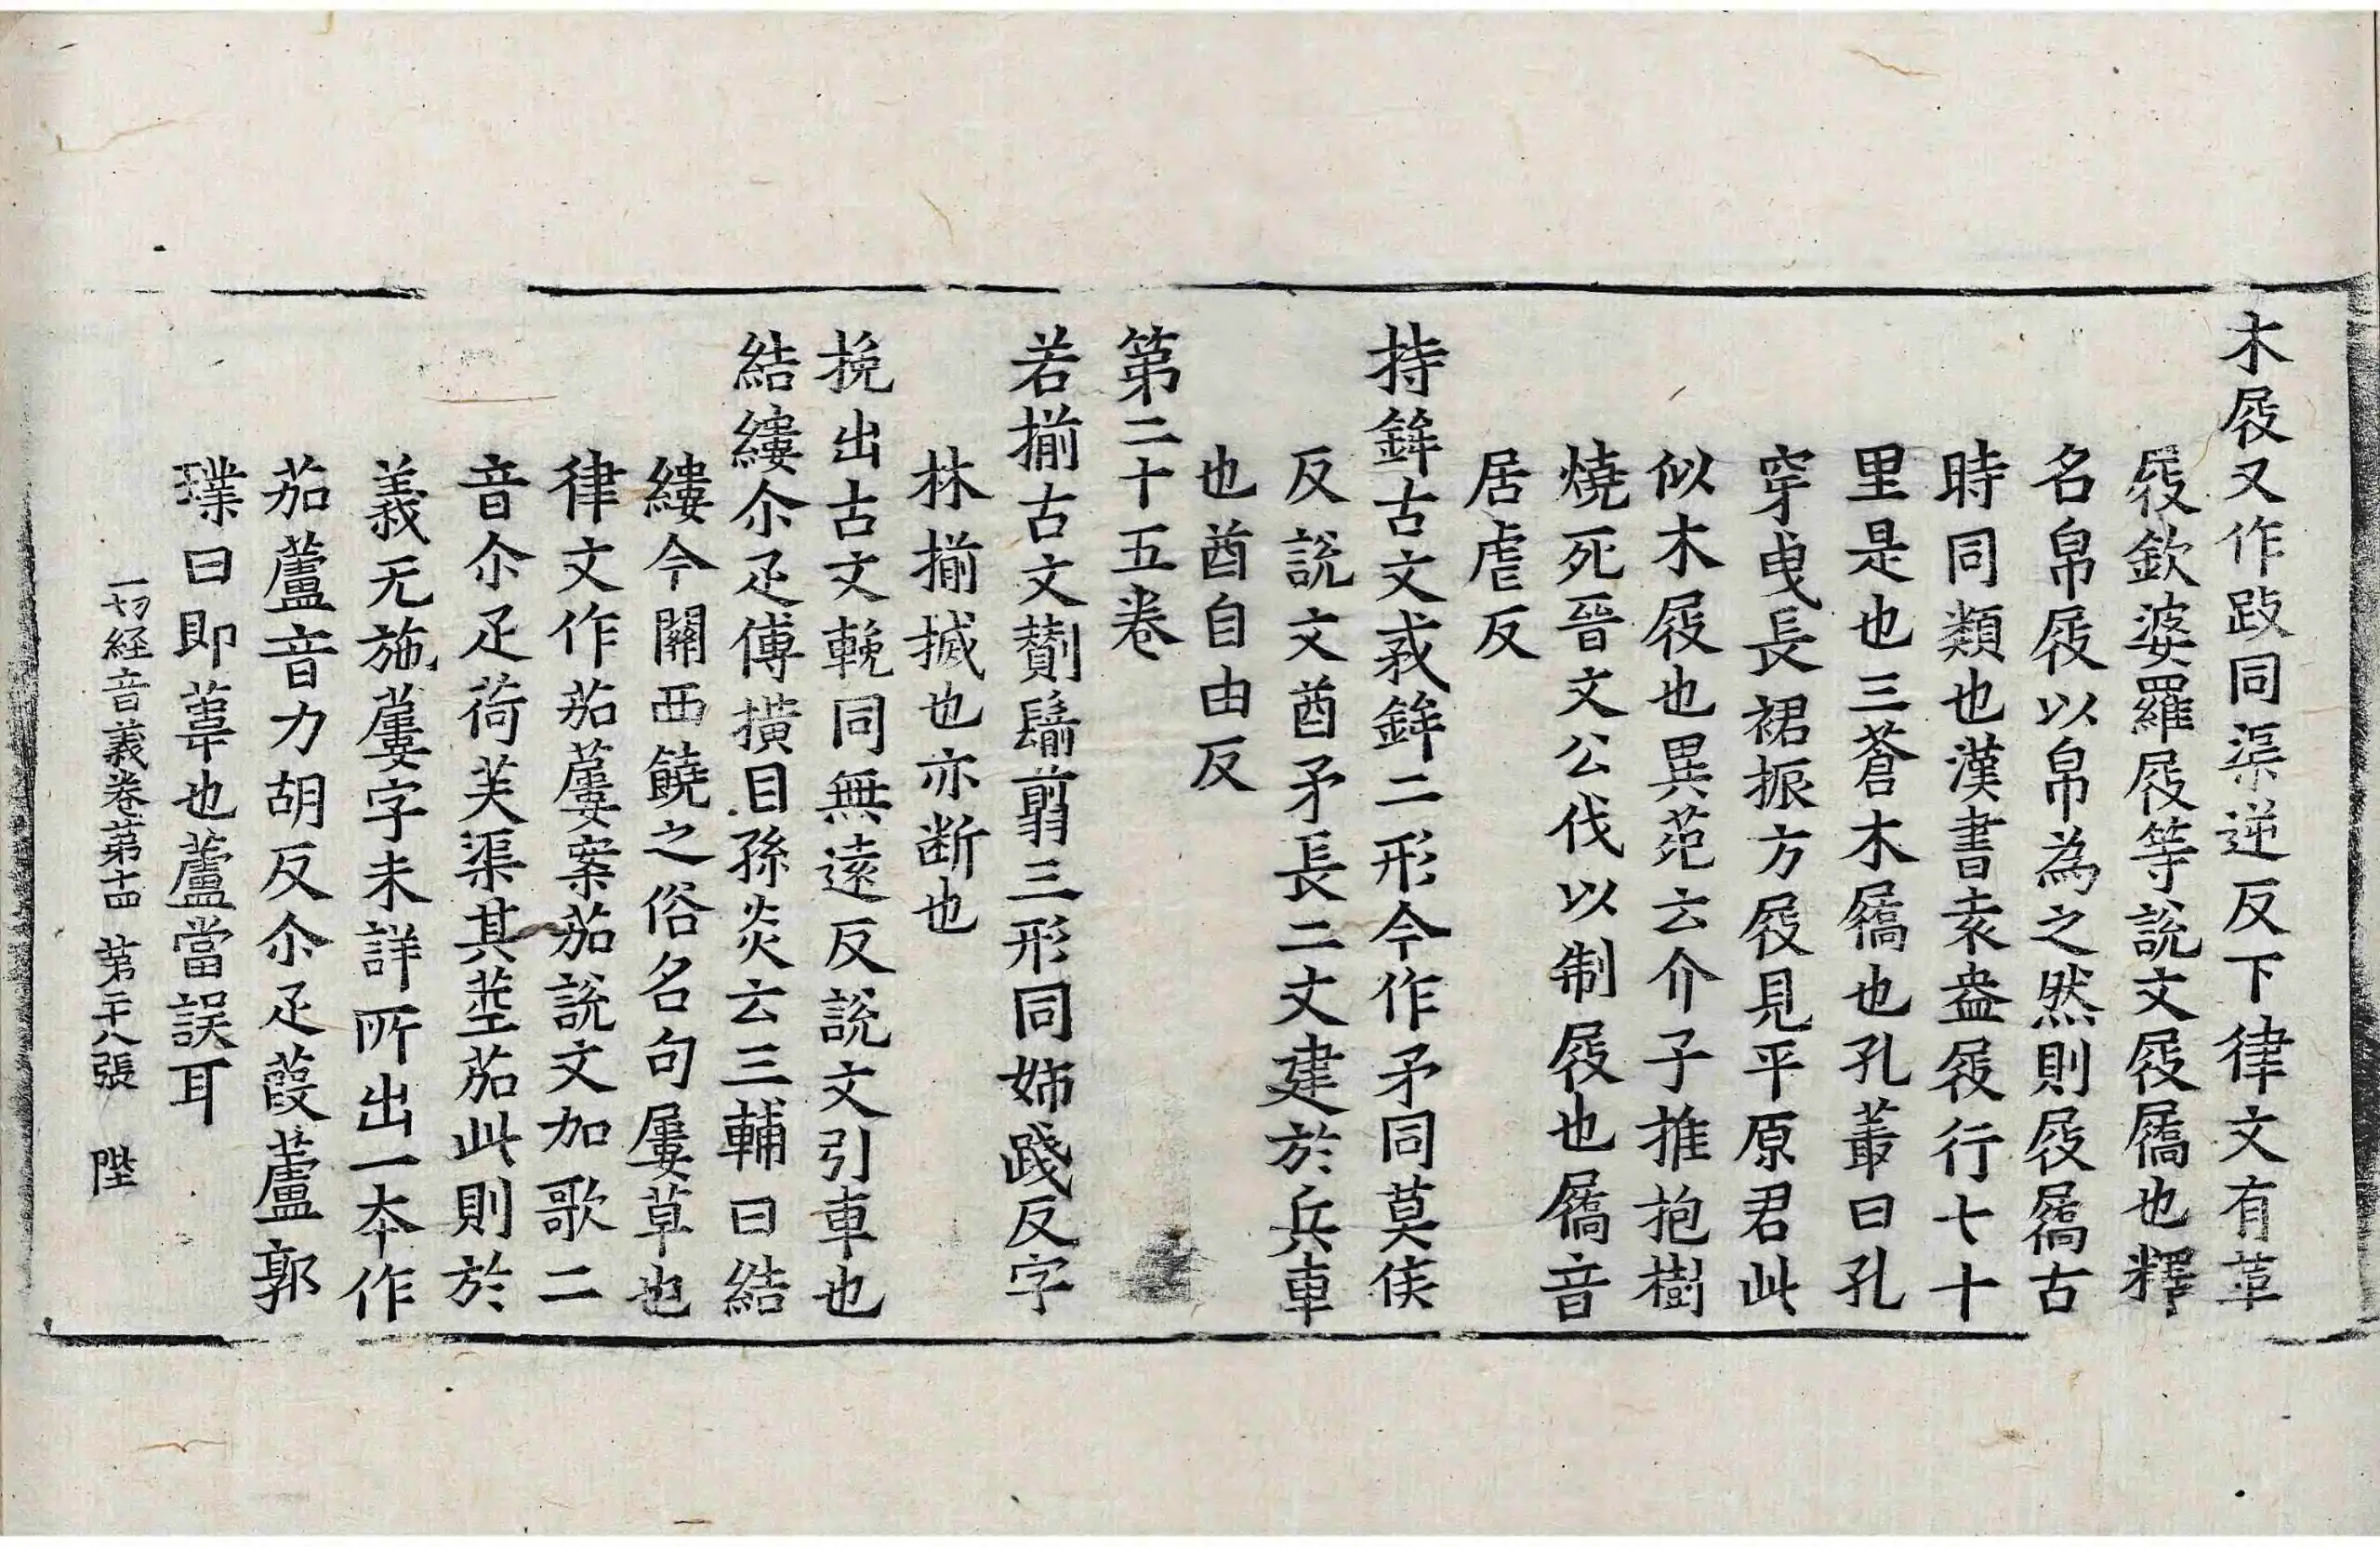 木屐又作䟦同渠逆反下律文有䓍
屐欽婆羅屐等說文屐屩也釋
名帛屐以帛為之然則屐屩古
時同類也漢書袁盎屐行七十
里是也三蒼木屩也孔叢曰孔
穿曳長裾振方屐見平原君此
似木屐也異菀云介子推抱樹
燒死晉文公伐以制屐也屩音
居虐反
持鉾古文𢦧鉾二形今作矛同莫侯
反說文酋矛長二丈建於兵車
也酋自由反
第二十五卷
若揃古文鬋翦三形同姊踐反字
林揃搣也亦断也
挽出古文輓同無遠反說文引車也
結縷尒疋傅撗目孫炎云三輔曰結
縷今關西饒之俗名句屢草也
律文作茄蔞案茄說文加歌二
音尒疋荷芙渠其莖茄此則於
義无施蔞字未詳所出一本作
茄蘆音力胡反尒疋葭蘆郭
璞曰即葦也蘆當誤耳
一切經音義卷第十四 第二十八張 陛